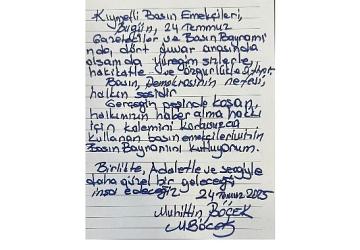 Kıymetli Basın Emekçileri,
Bugün, 24 Temmuz
Gazeteciler ve Basın Bayramı'
nda, dört duvar arasında
olsamda yüreğim sizlerle,
hakikatle ve özgürlükle
Basın, Demokrasinin nefesi,
halkın sesidir
Gerçeğin peşinde koşan,
halkımızın haber alma hakkı
için kalemini korkusuzca
kullanan basın emekçilerinin
Basın Bayramını kutluyorum.
Birlikte, Adaletle ve sevgiyle
daha güzel bir geleceği
inşa edeceğiz
24 Temmuz 2025
Muhittin BÖCEK
MBöcek